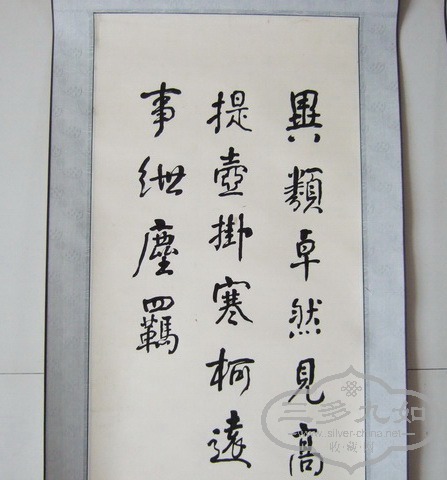 異類卓然見高
提壺掛寒柯遠
事紲塵羈
三多九如
www.silver-china.net